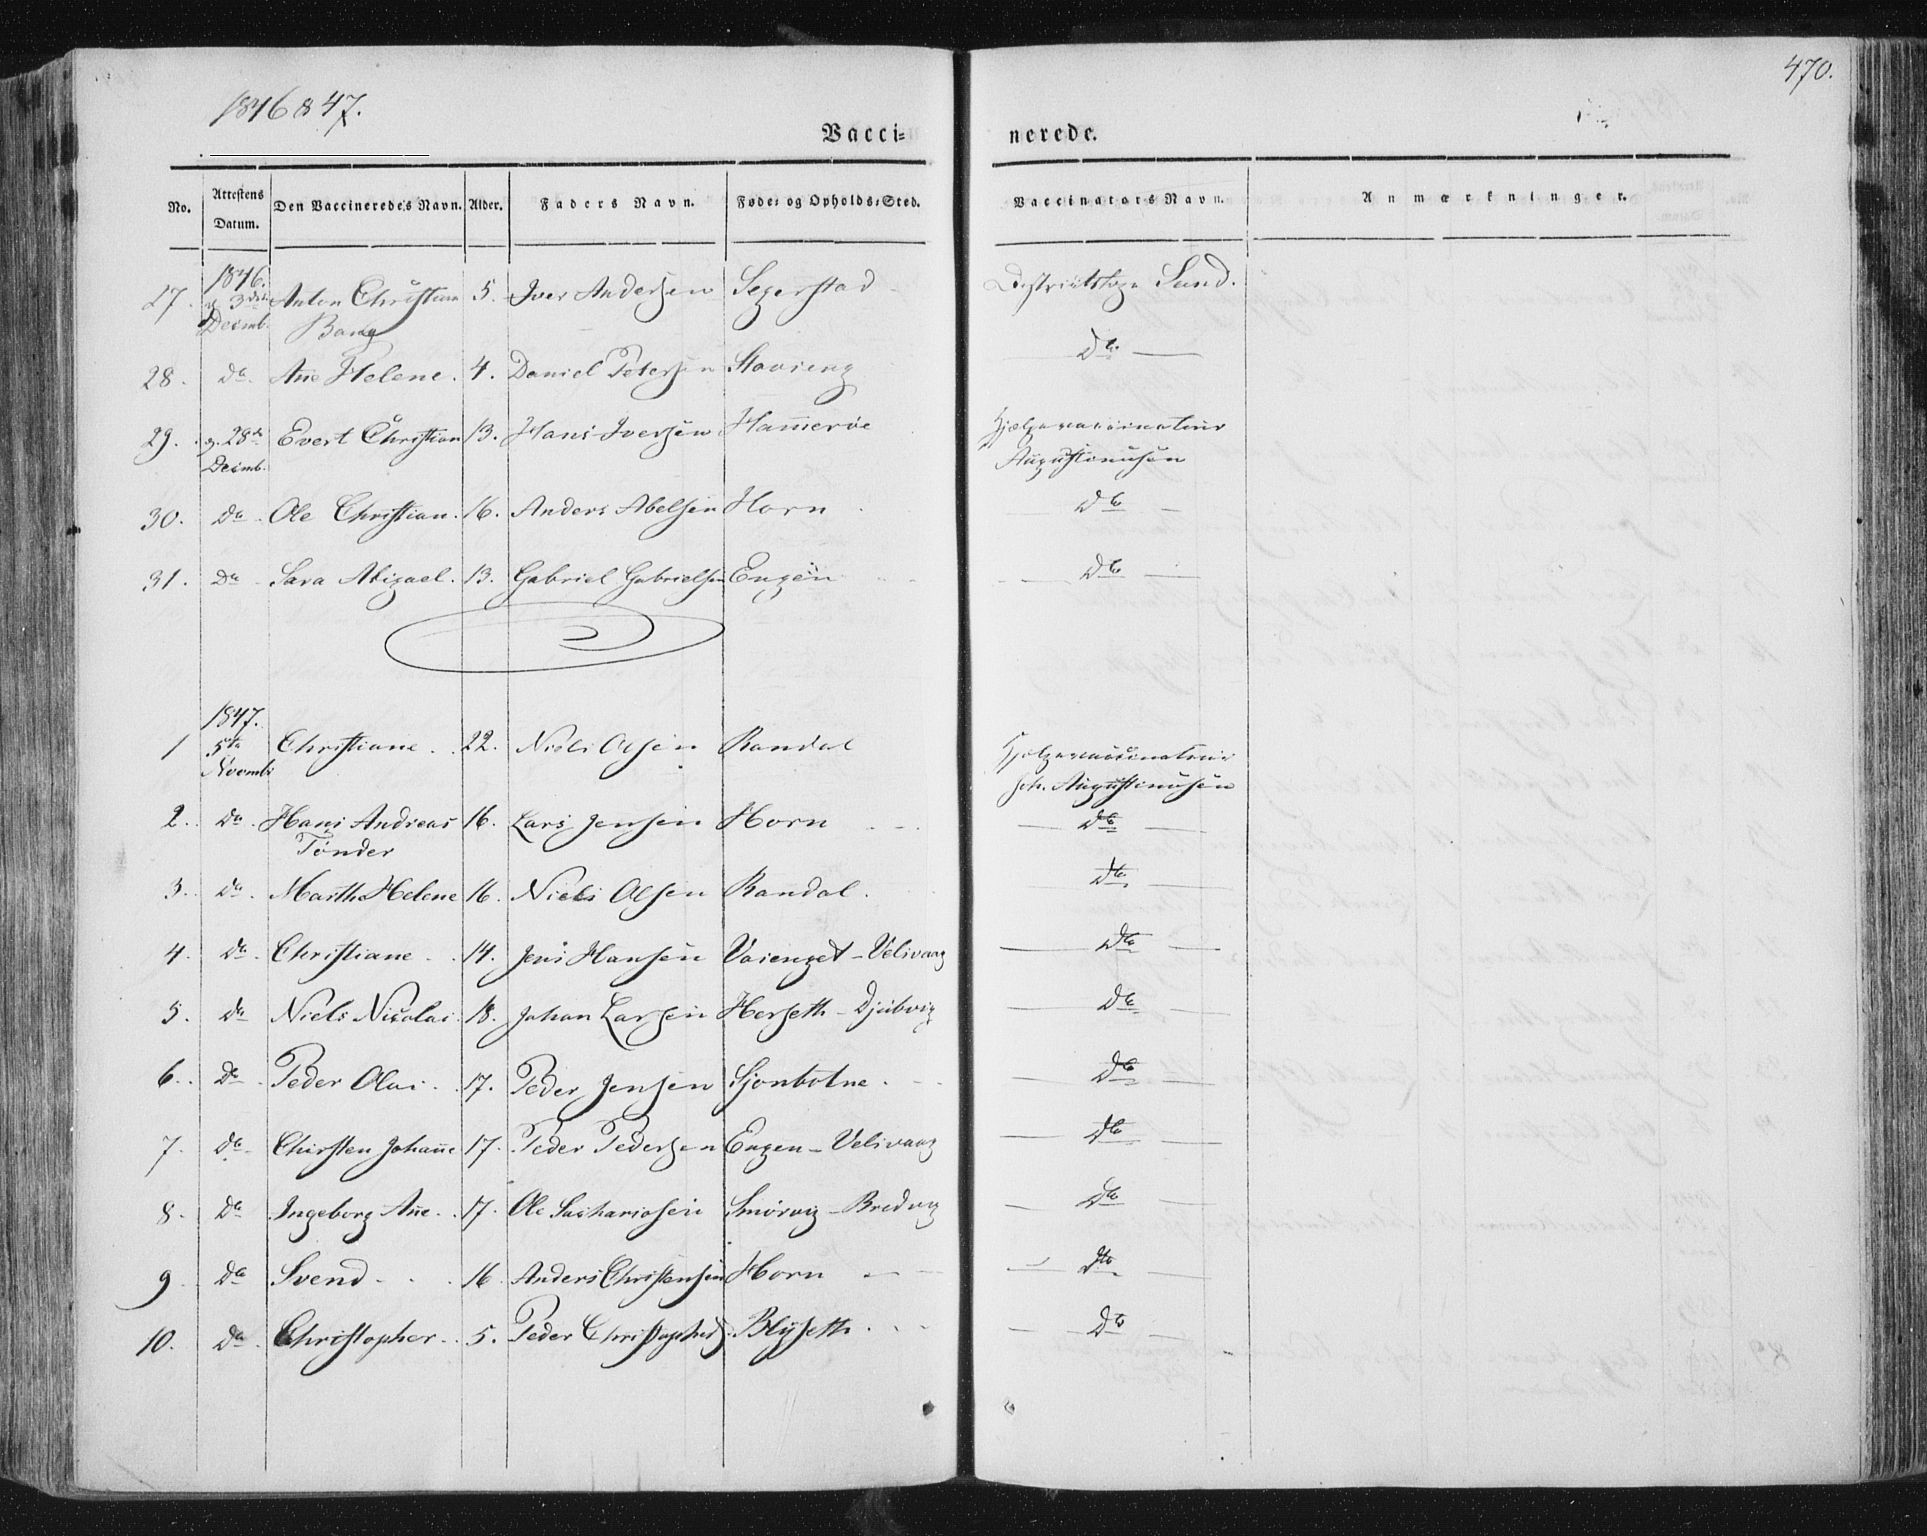 1846 & 47.
470.
Vacci= nerede.
No. Attestens Datum. Den Vaccineredes Navn. Alder. Faders Navn. Føde= og Opholds=Sted. Vaccinators Navn. Anmærkninger.
1846.
27. 3die Anton Christian 5. Iver Andersen Segerstad Districtslæge Lund.
Decmb. Bang
28. Do. Añe Helene. 4. Daniel Petersen Stavseng Do.
29. 28de Evert Christian 13. Hans Iversen Ham̃erøe Hjælpevaccinateur
Decmb. Augustinusen
30. Do. Ole Christian. 16. Anders Abelsen Horn Do
31. Do Sara Abigael. 13. Gabriel Gabrielsen Engen Do
1847.
1 5te Christiane. 22. Niels Olsen Randal Hjelpevaccinateur
Novmb. Joh. Augustinusen
2. Do. Hans Andreas 16. Lars Jensen Horn Do
Tønder
3. Do. Marth Helene 16. Niels Olsen Randal. Do
4. Do. Christiane 14. Jens Hansen Vaienget - Velivaag Do
5. Do Niels Nicolai 18. Johan Larsen Herseth - Djubvig Do
6. Do Peder Olai 17. Peder Jensen Sjonbotne. Do
7. Do Chirsten Johañe 17. Peder Pedersen Engen - Velivaag Do
8. Do Ingeborg Añe 17. Ole Sachariasen Smørvig - Bredvig Do
9 Do Svend 16 Anders Christensen Horn Do
10. Do. Christopher. 5. Peder Christophers. Blyseth. Do